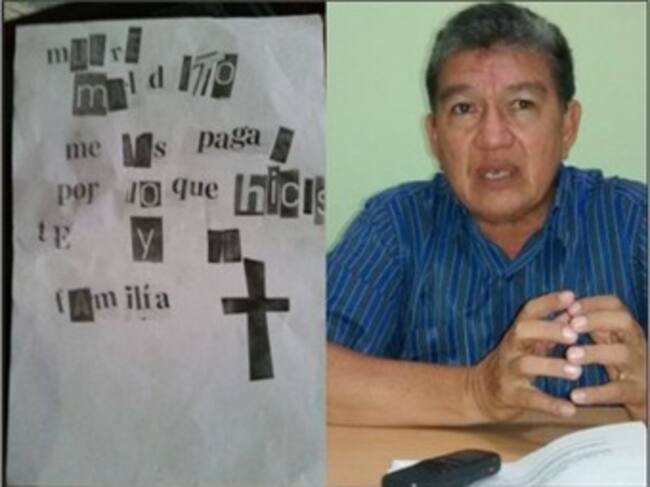 muere
maldito
me vas pagas
por lo que hicis
tE y tu
fAmilia